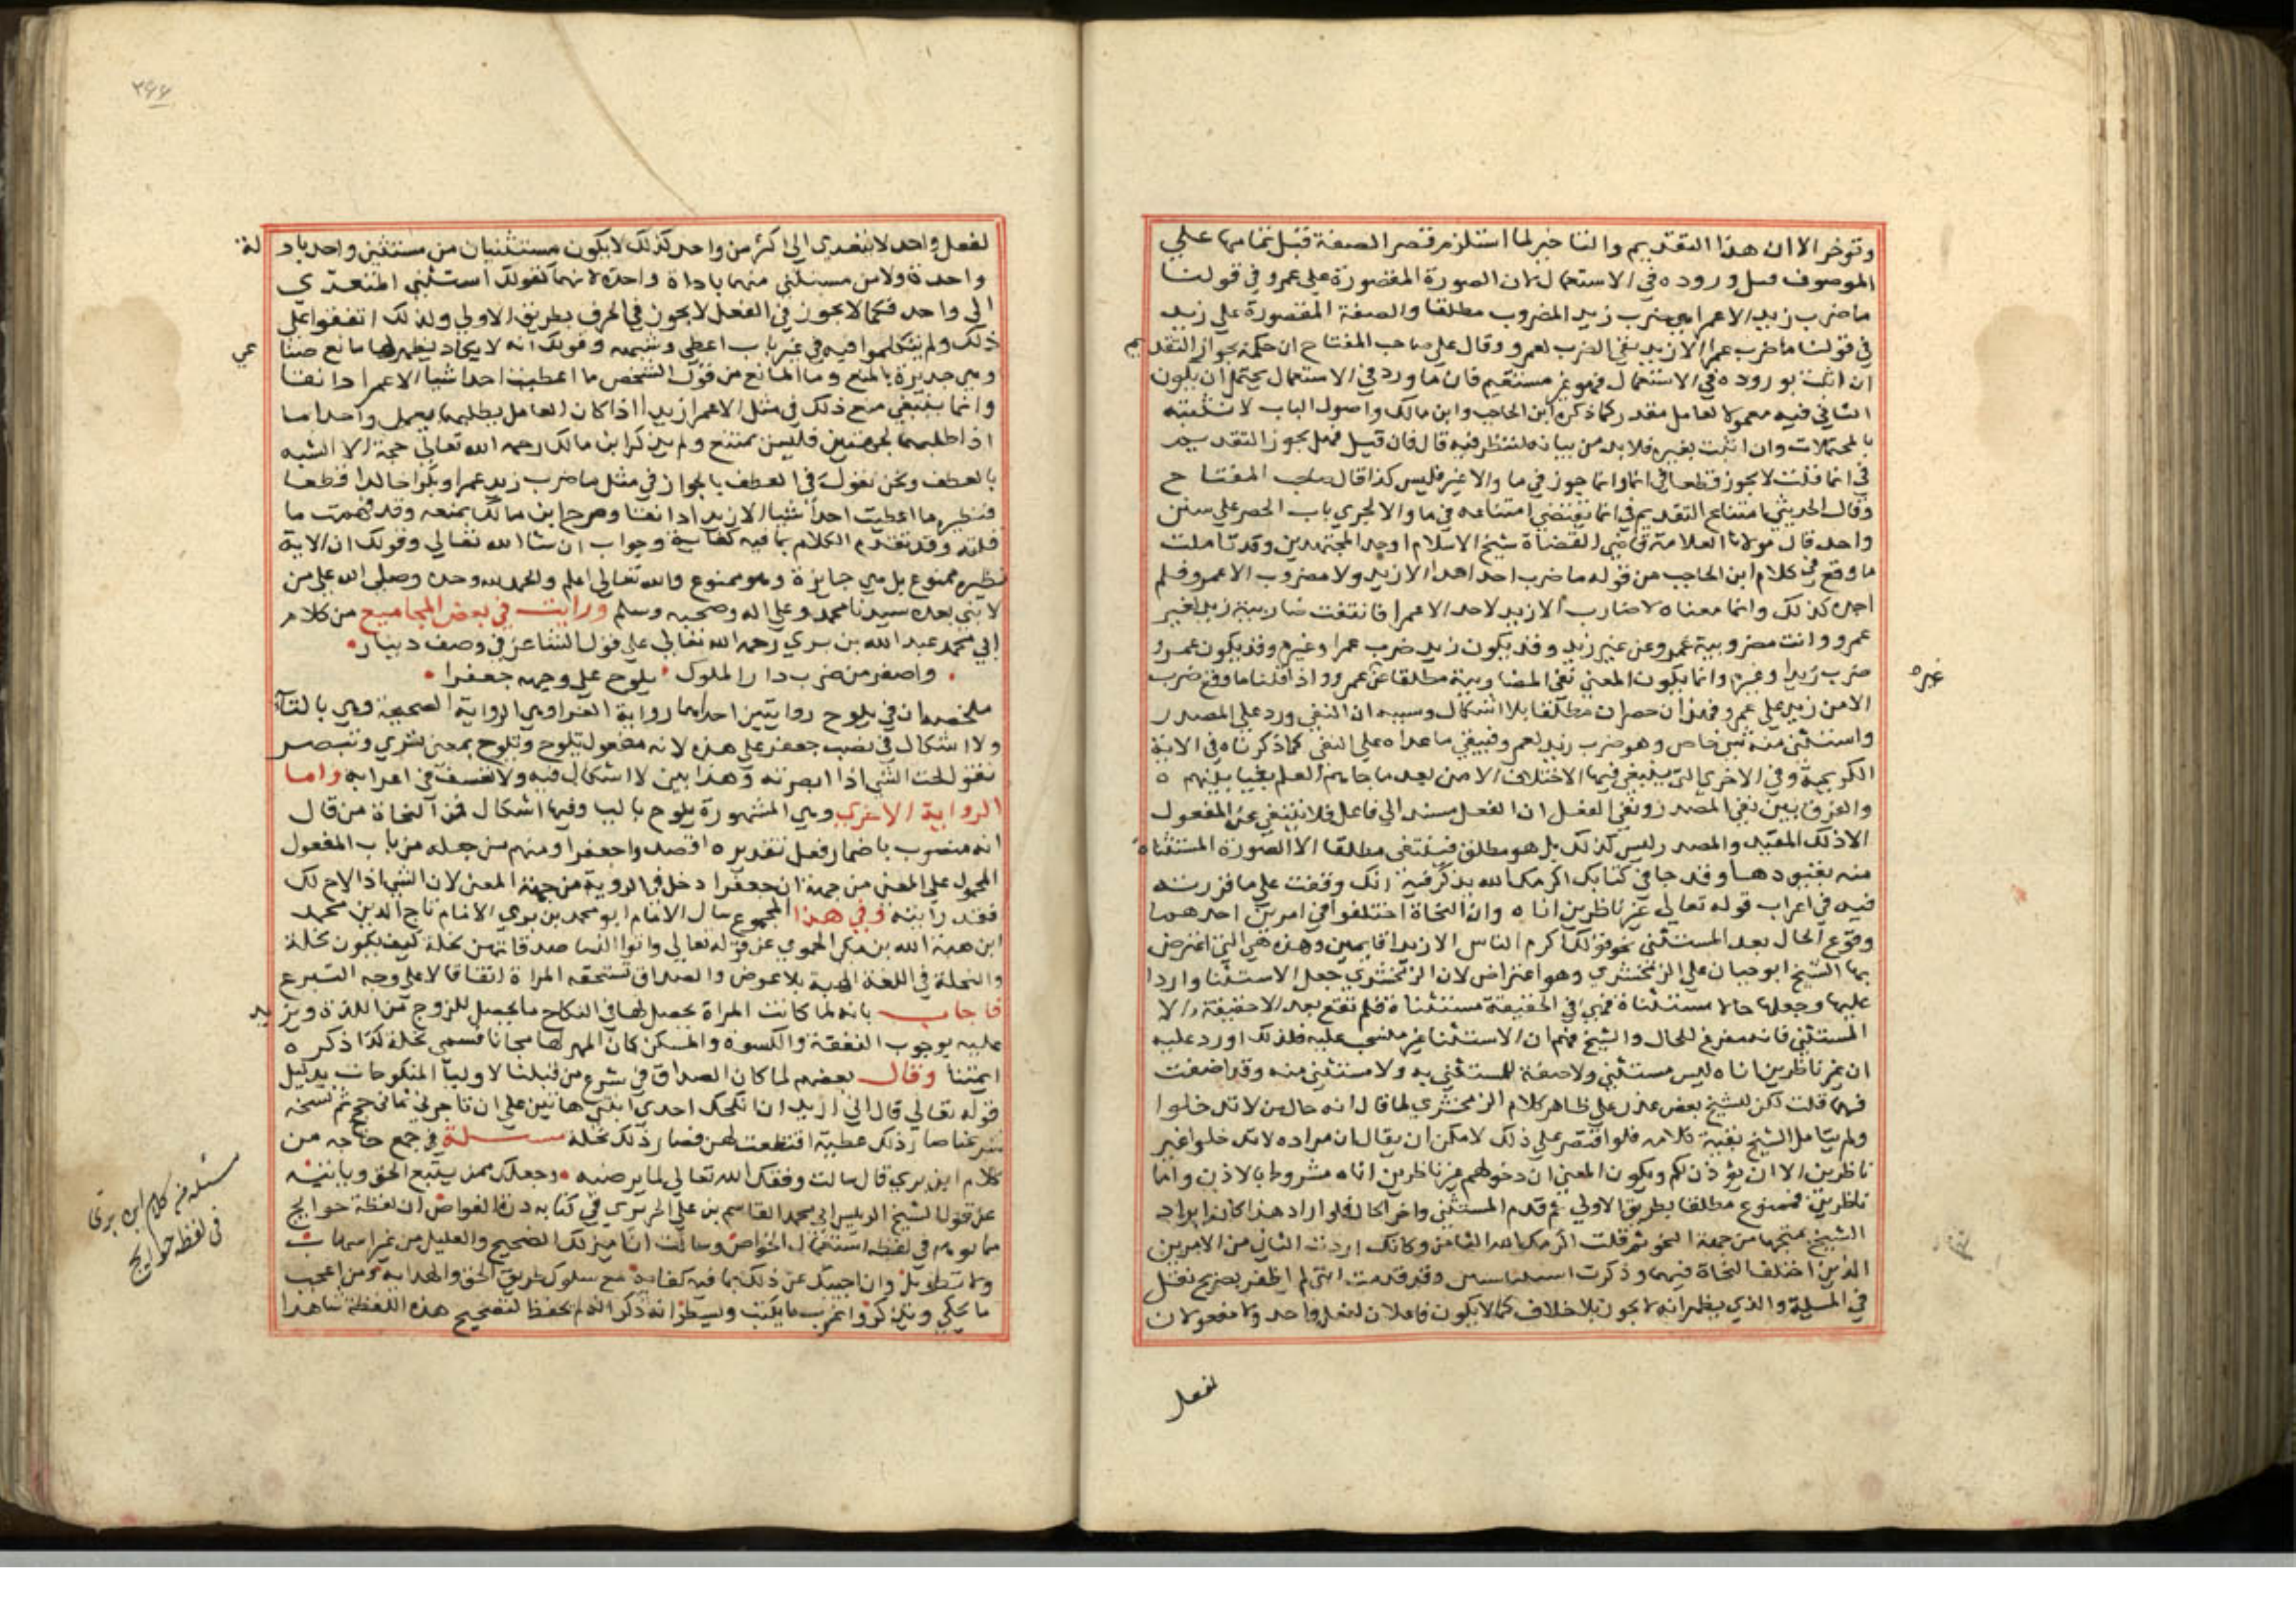 وتوخر الا ان هذا التقديم والتاخير لما استلزم قصر الصفة قبل تمامها علي
الموصوف قبل وروده في الاستعمال لان الصورة المقصورة علي عمرو في قولنا
ما ضرب زيد الا عمرا هي ضرب زيد المضروب مطلقا والصفة المقصورة علي زيد
في قولنا ما ضرب عمرا الا زيد نفي الضرب لعمرو وقال علي صاحب المفتاح ان حكمه بجواز التقديم
ان اثبت بوروده في الاستعمال فهو غير مستقيم فان ما ورد في الاستعمال يحتمل ان يكون
الثاني فيه معمولا لعامل مقدر كما ذكره ابن الحاجب وابن مالك واصول الباب لا تثبته
بالمحتملات وان اثبت بغيره فلا بد من بيانه لننظر فيه قال فان قيل فهل يجوز التقديم
في انما قلت لا يجوز قطعا في انما وانما جوز في ما والا غيره فليس كذا قال صاحب المفتاح
وقال الحديثي امتناع التقديم في انما يقتضي امتناعه في ما والا لجري باب الحصر علي سنن
واحد قال مولانا العلامة قاضي القضاة شيخ الاسلام اوحد المجتهدين وقد تاملت
ما وقع في كلام ابن الحاجب من قوله ما ضرب احد احدا الا زيد ولا مضروب الا عمرو فلم
اجده كذلك وانما معناه لا ضارب الا زيد لاحد الا عمرا فانتفت ضاربية زيد لغير
عمرو وانتفت مضروبية عمرو عن غير زيد وقد يكون زيد ضرب عمرا وغيره وقد يكون عمرو
ضرب زيدا وغيره وانما يكون المعني نفي المضاربية مطلقا عن غير عمرو واذا قلنا ما وقع ضرب
الا من زيد علي عمرو فهذان حصران مطلقا بلا اشكال وسببه ان النفي ورد علي المصدر
واستثني منه شي خاص وهو ضرب زيد لعمرو فيبقي ما عداه علي النفي كما ذكرناه في الاية
الكريمة وفي الاخري التي ينبغي فيها الاختلاف الا من بعد ما جاهم العلم بغيا بينهم ه
والفرق بين نفي المصدر ونفي الفعل ان الفعل مسند الي فاعل فلا ينتفي عن المفعول
الا ذلك المقيد والمصدر ليس كذلك بل هو مطلق فينتفي مطلقا الا الصورة المستثناة
منه بقيودها وقد جا في كتابك اكرمك الله يذكر فيه انك وقفت علي ما قررته
فيه في اعراب قوله تعالي غير ناظرين اناه وان النحاة اختلفوا في امرين احدهما
وقوع الحال بعد المستثني نحو قولك اكرم الناس الا زيدا قايمين وهذه هي التي اعترض
بها الشيخ ابو حيان علي الزمخشري وهو اعتراض لان الزمخشري جعل الاستثنا واردا
عليها وجعلها حالا مستثناة فهي في الحقيقة مستثناة فلم تقع بعد الا حقيقة الا
المستثني فانه مفرغ للحال والشيخ فهم ان الاستثنا غير منسحب عليه فلذلك اورد عليه
ان غير ناظرين اناه ليس مستثني ولا صفة للمستثني به ولا مستثني منه وقد اضفت
فيها قلت لكن للشيخ بعض عذر علي ظاهر كلام الزمخشري لما قال انه حال من لا تدخلوا
ولم يتامل الشيخ بقية كلامه فلو اقتصر علي ذلك لامكن ان يقال ان مراده لا تدخلوا غير
ناظرين الا ان يؤذن لكم ويكون المعني ان دخولهم غير ناظرين اناه مشروط بالاذن واما
ناظرين فممنوع مطلقا بطريق الاولي ثم قدم المستثني واخر الحال فلو اراد هذا كان ايراد
الشيخ متجها من جهة النحو ثم قلت اكرمك الله الثامن وكانك اردت الثاني من الامرين
الذين اختلف النحاة فيهما وذكرت وقد قدمت انني لم اظفر بصريح نقل
في المسيلة والذي يظهر انه لا يجوز بلا خلاف كما لا يكون فاعلان لفعل واحد ولا مفعولان
غيره
لفعل
لفعل واحد لا يتعدي الي اكثر من واحد كذلك لا يكون مستثنيان من مستثني واحد باداة
واحدة ولا من مستثني منهما باداة واحدة لانهما كقولك استثني المتعدي
الي واحد فكما لا يجوز في الفعل لا يجوز في الحرف بطريق الاولي ولذلك اتفقوا علي
ذلك ولم يتكلموا فيه في غير باب اعطي وشبهه وقولك انه لا يكاد يظهر لها مانع صناعي
وهي جديرة بالمنع وما المانع من قول الشخص ما اعطيت احدا شيا الا عمرا دانقا
وانما ينبغي منع ذلك في مثل الا عمرا زيدا اذا كان العامل يطلبهما بعمل واحد اما
اذا طلبهما بجهتين فليس بممتنع ولم يذكر ابن مالك رحمه الله تعالي حجة الا الشبه
بالعطف ونحن نقول في العطف بالجواز في مثل ما ضرب زيد عمرا وبكرا خالدا قطعا
فنظيره ما اعطيت احدا شيا الا زيدا دانقا وصرح ابن مالك بمنعه وقد فهمت ما
قلته وقد تقدم الكلام بما فيه كفاية وجواب ان شا الله تعالي وقولك ان الاية
نظيره ممنوع بل هي جايزة وهو ممنوع والله تعالي اعلم والحمد لله وحده وصلي الله علي من
لا نبي بعده سيدنا محمد وعلي اله وصحبه وسلم ورايت في بعض المجاميع من كلام
ابي محمد عبد الله بن بري رحمه الله تعالي علي قول الشاعر في وصف دينار
واصفر من ضرب دار الملوك يلوح علي وجهه جعفرا
ملخصه ان في يلوح روايتين احداهما رواية الفرا وهي الرواية الصحيحة وهي بالتآ
ولا اشكال في نصب جعفر علي هذه لانه مفعول بتلوح وتلوح بمعني تري وتبصر
تقول لحت الشي اذا ابصرته وهذا بين لا اشكال فيه ولا تعسف في اعرابه واما
الرواية الاخري وهي المشهورة يلوح باليا وفيها اشكال فمن النحاة من قال
انه منصوب باضمار فعل تقديره اقصدوا جعفرا ومنهم من جعله من باب المفعول
المحمول علي المعني من جهة ان جعفرا دخل في الروية من جهة المعني لان الشي اذا لاح لك
فقد رايته وفي هذا المجموع سال الامام ابو محمد بن بري الامام تاج الدين محمد
ابن هبة الله بن مكي الحموي عن قوله تعالي واتوا النسا صدقاتهن نحلة كيف يكون نحلة
والنحلة في اللغة الهبة بلا عوض والصداق تستحقه المراة اتفاقا لا علي وجه التبرع
فاجاب بانه لما كانت المراة يحصل لها في النكاح ما يحصل للزوج من اللذة ويزيد
عليه بوجوب النفقة والكسوة والمسكن كان المهر لها مجانا فسمي نحلة كذا ذكره
ايمتنا وقال بعضهم لما كان الصداق في شرع من قبلنا لاوليآ المنكوحات بدليل
قوله تعالي قال اني اريد ان انكحك احدي ابنتي هاتين علي ان تاجرني ثماني حجج ثم نسخه
شرعنا صار ذلك عطية اقتطعت لهن فصار ذلك نحلة مسيلة في جمع حاجه من
كلام ابن بري قال سالت وفقك الله تعالي لما يرضيه وجعلك ممن يتبع الحق وياتيه
عن قول الشيخ الرييس ابي محمد القاسم بن علي الحريري في كتابه درة الغواص ان لفظة حوايج
مما توهم في لفظه استعمال الخواص وسالت ان اميز لك الصحيح والعليل من غير اسهاب
ولا تطويل وان اجيبك عن ذلك بما فيه كفاية مع سلوك طريق الحق والهداية ومن اعجب
ما يحكي ويذكر واغرب ما يكتب ويسطر انه ذكر انه لم يحفظ لتصحيح هذه اللفظة شاهدا
مسئله من كلام ابن بري
في لفظه حوايج